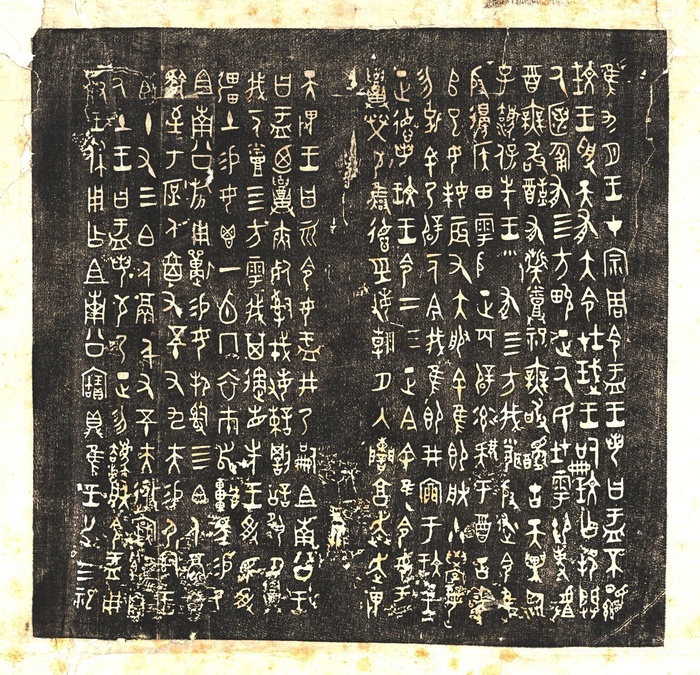 隹九月王才宗周令盂王若曰盂不顯
玟王受天有大令在珷王嗣玟乍邦闢
氒匿匍有四方畯正氒民在雩御事䖒
酉無敢酖有祡烝祀無敢醻古天異臨
子灋保先王有四方我聞殷述令隹
殷邊侯田雩殷正百辟率肄于酉古喪
𠂤巳女妹辰又大服余隹即朕小學女
勿克余乃辟一人今我隹即井㐭于玟王
正德若玟王令二三正今余隹令女盂
召榮敬雝德巠敏朝夕入讕享奔走畏
天畏王曰而令女盂井乃嗣且南公王
曰盂廼召夾死𤔲戎敏諫罰訟夙夕召
我一人烝四方雩我其遹省先王受民受
彊土易女鬯一卣冂衣巿舄車馬易乃
且南公旂用遱易女邦𤔲四白人鬲自
馭至于庶人六百又五十又九夫易尸𤔲王
臣十又三白人鬲千又五十夫遷自
氒土王曰盂若敬乃正勿灋朕令盂用
對王休用乍且南公寶鼎隹王廿又三祀